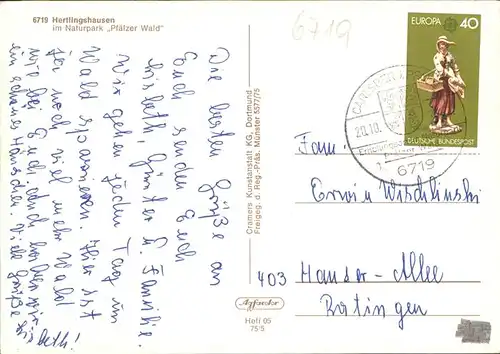 6719 Hertlingshausen
im Naturpark „Pfälzer Wald"
6719
Die besten Grüße an
Euch senden Euch
Lisbeth, Günter u. Familie.
Wir gehen jeden Tag im
Wald spazieren. Hier ist
ja noch viel mehr Wald
wie bei Euch und haben wir
ein schönes Häuschen. Viele Grüße
Lisbeth!
Cramers Kunstanstalt KG, Dortmund
Freigeg. d. Reg.-Präs. Münster 5577/75
Agfacolor
Heft 05
75/5
EUROPA 40
DEUTSCHE BUNDESPOST
20.10.
6719
Fam.
Erwin Wischlinski
403 Hauser-Allee
Ratingen